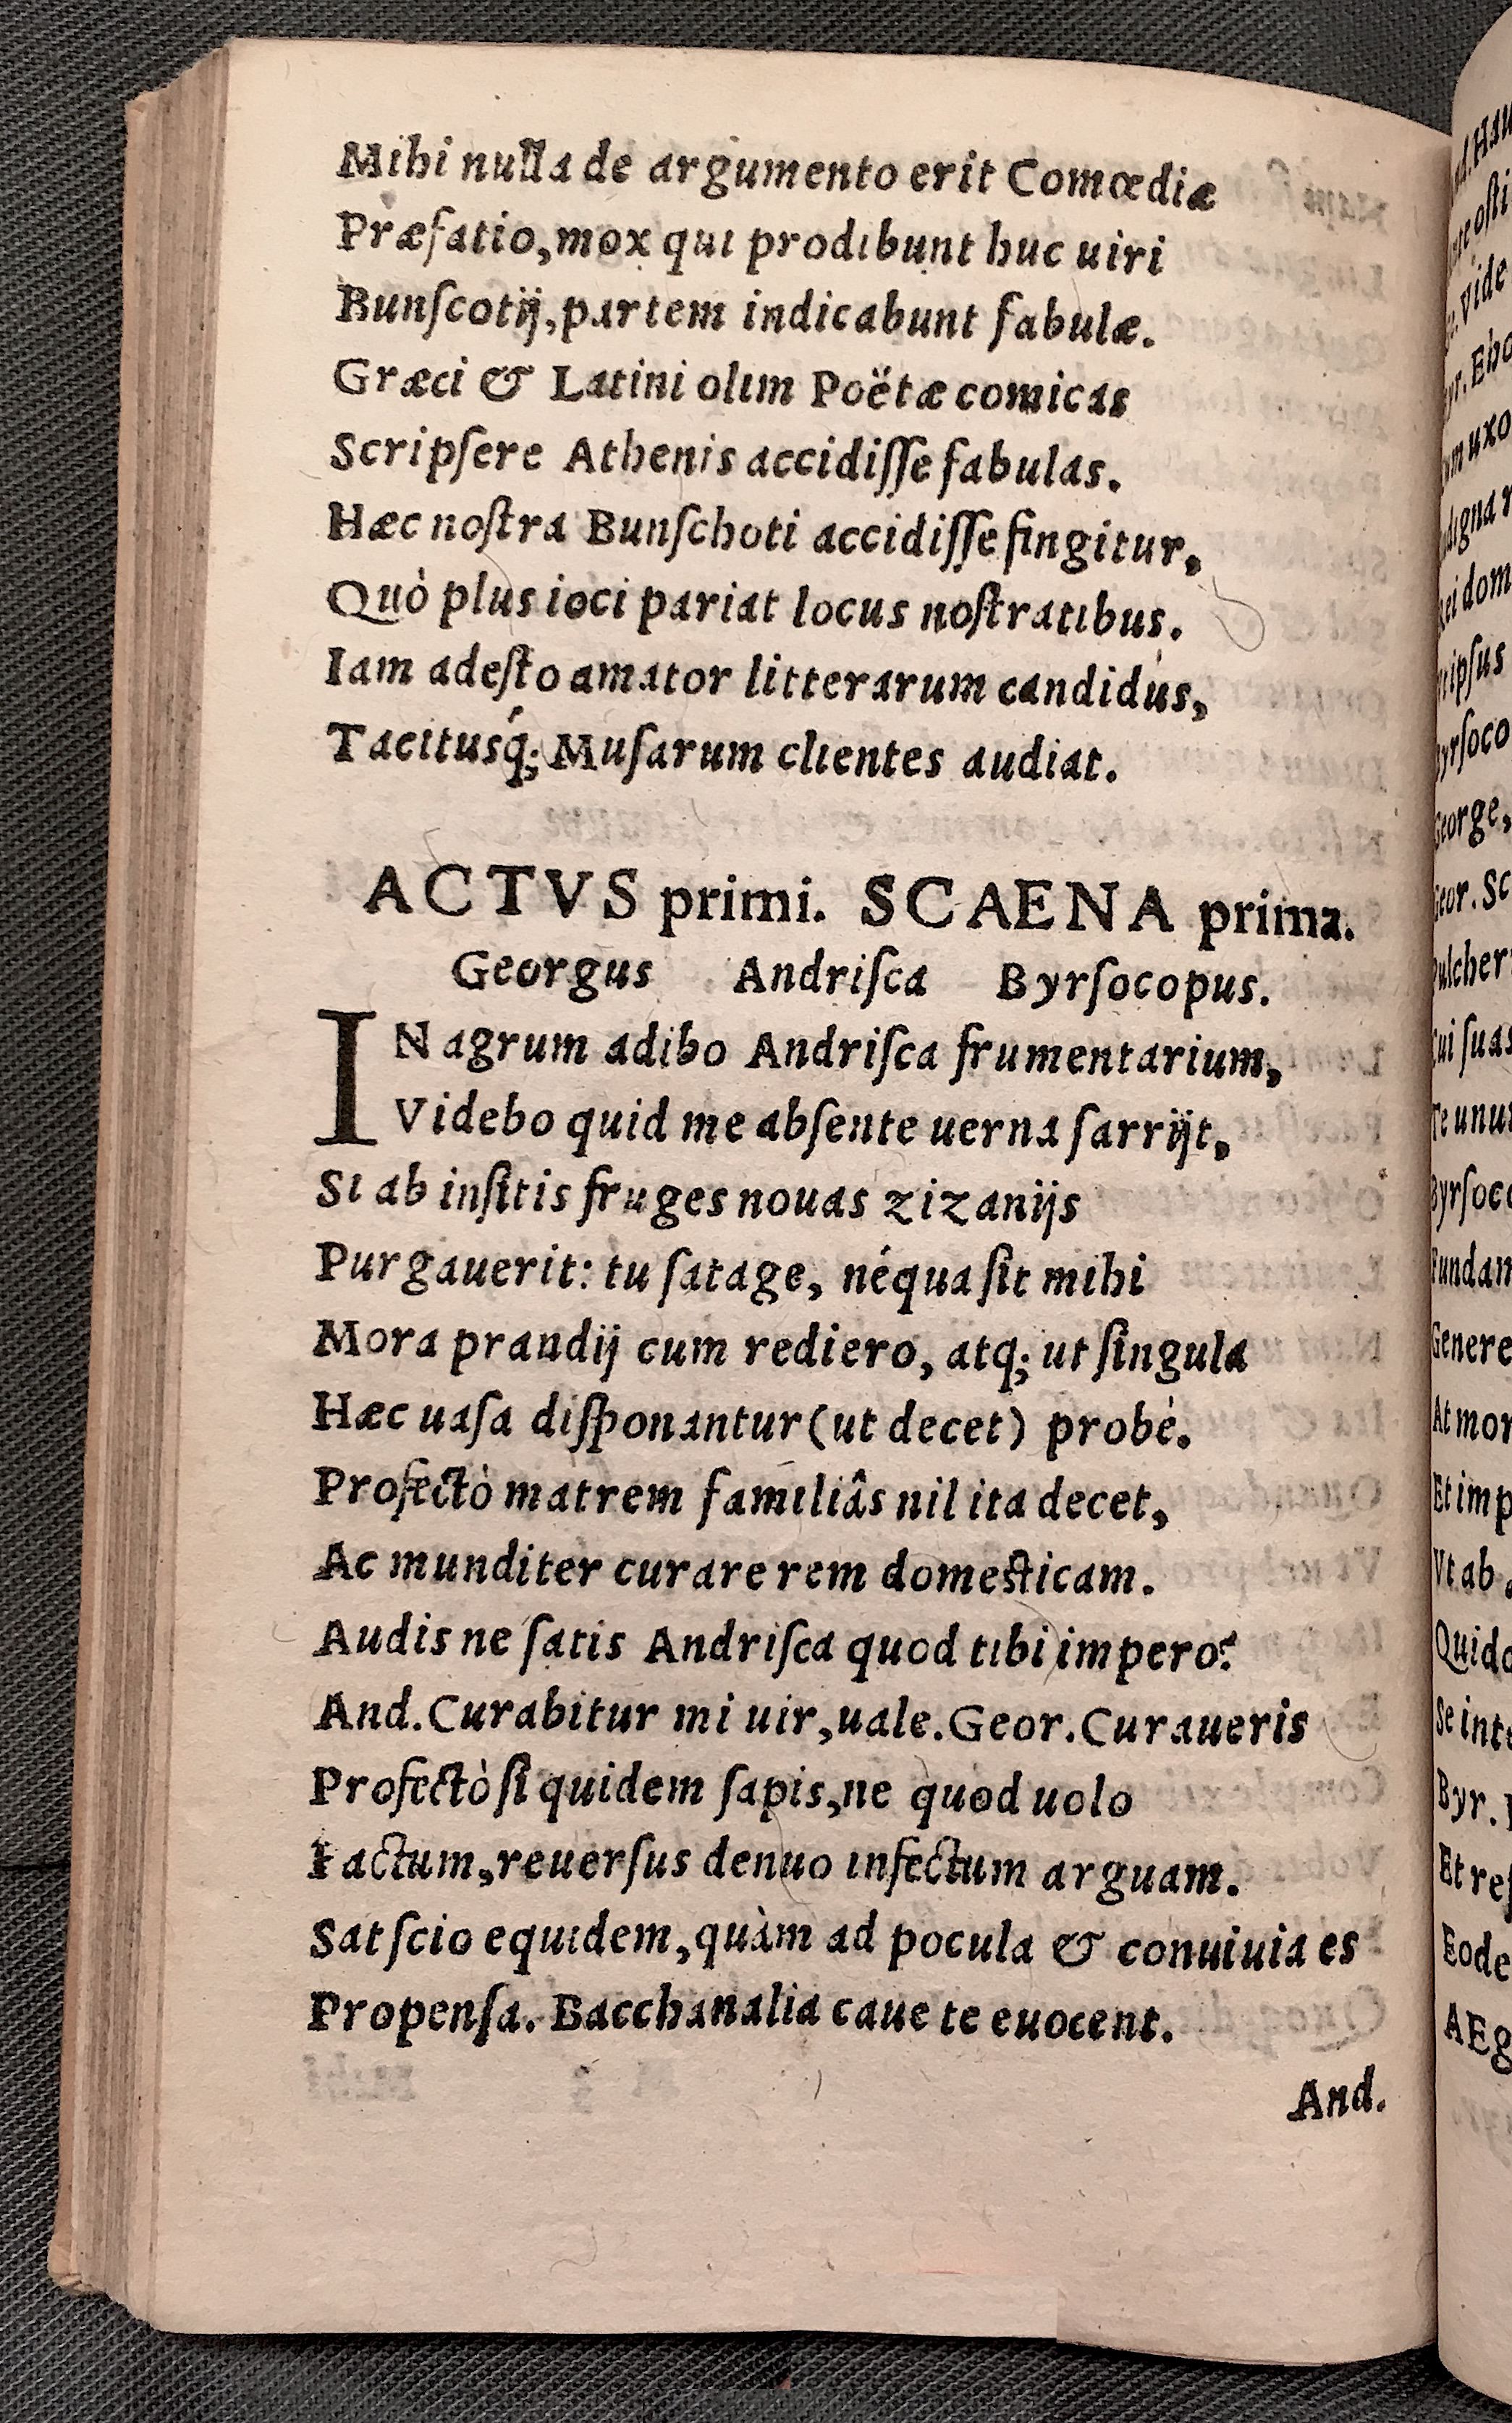 Mihi nulla de argumento erit Comœdiæ
Præfatio, mox qui prodibunt huc uiri
Bunſcotij, partem indicabunt fabulæ.
Græci & Latini olim Poëtæ comicas
Scripſere Athenis accidiſſe fabulas.
Hæc noſtra Bunſchoti accidiſſe fingitur,
Quò plus ioci pariat locus noſtratibus.
Iam adeſto amator litterarum candidus,
Tacitusq́; Muſarum clientes audiat.
ACTVS primi. SCAENA prima.
Georgus Andriſca Byrſocopus.
IN agrum adibo Andriſca frumentarium,
Videbo quid me abſente uerna ſarrijt,
Si ab inſitis fruges nouas zizanijs
Purgauerit: tu ſatage, néqua ſit mihi
Mora prandij cum rediero, atq; ut ſingula
Hæc uaſa diſponantur (ut decet) probè.
Profectò matrem familiâs nil ita decet,
Ac munditer curare rem domeſticam.
Audis ne ſatis Andriſca quod tibi impero?
And. Curabitur mi uir, uale. Geor. Curaueris
Profectò ſi quidem ſapis, ne quod uolo
Factum, reuerſus denuo infectum arguam.
Sat ſcio equidem, quàm ad pocula & conuiuia es
Propenſa. Bacchanalia caue te euocent.
And.
George,